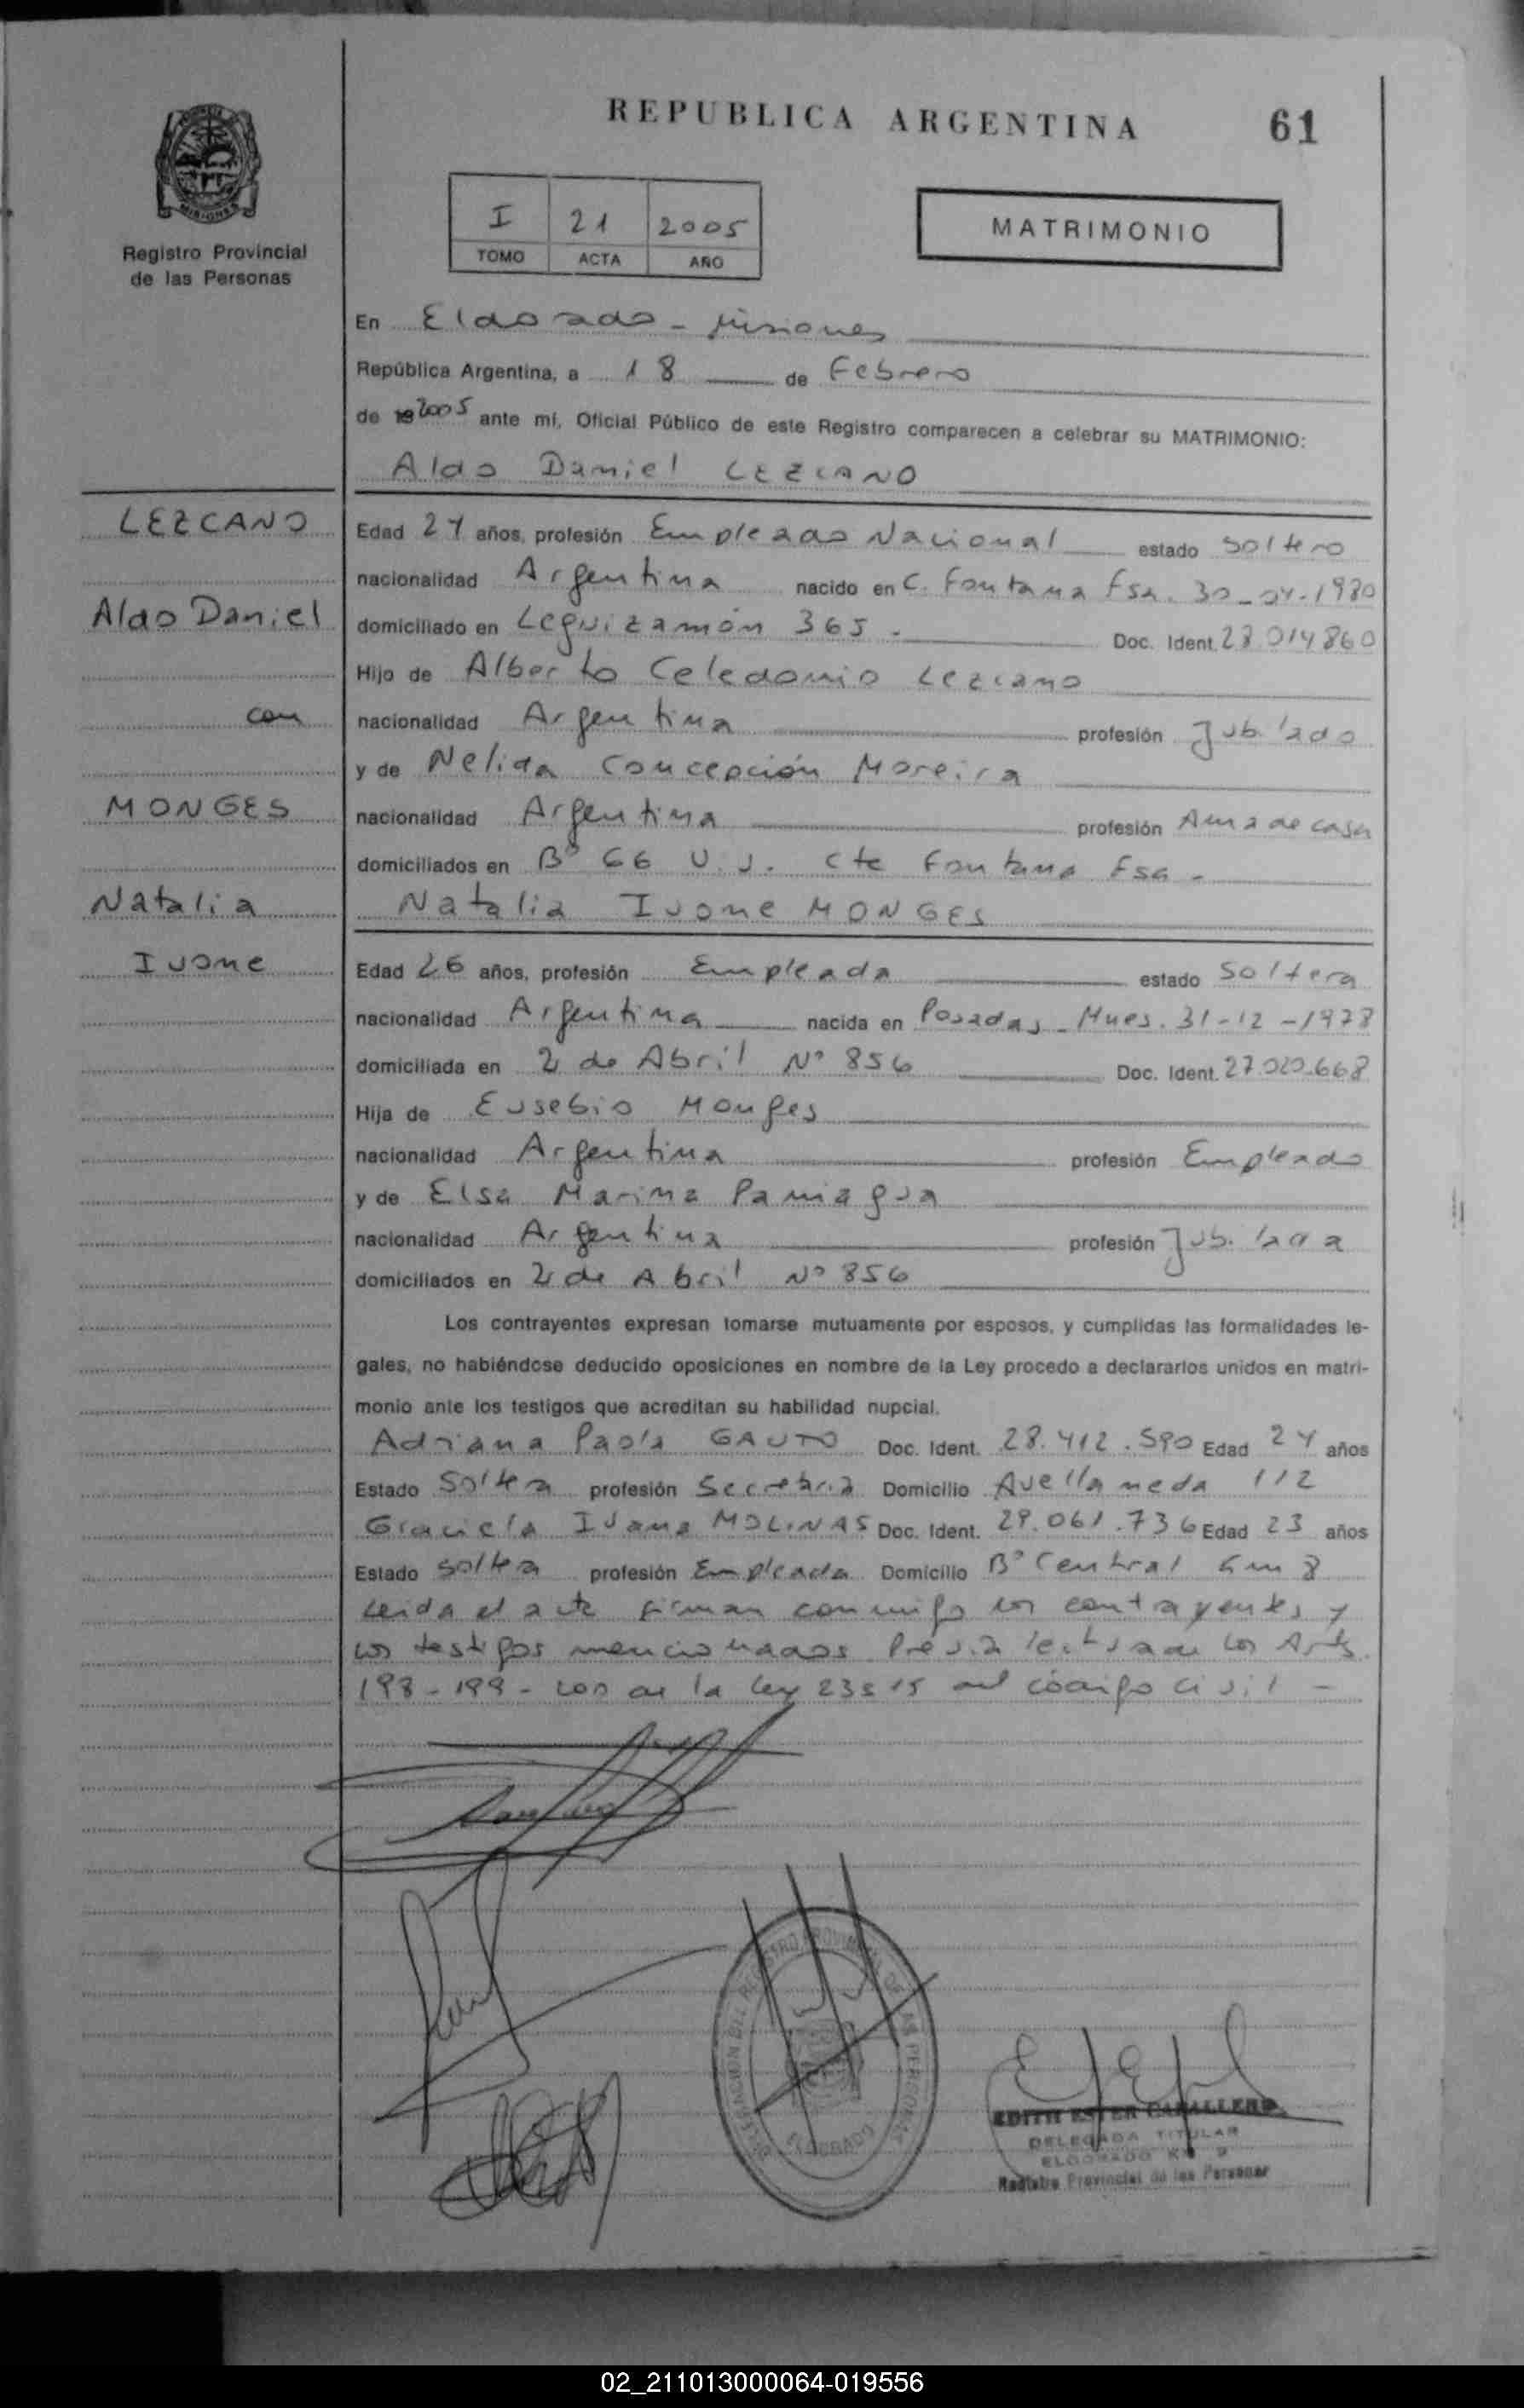 REPUBLICA ARGENTINA
61
MISIONES
Registro Provincial
de las Personas
I 21 2005
TOMO ACTA AÑO
MATRIMONIO
En Eldorado - Misiones
República Argentina, a 18 de Febrero
de 19 2005 ante mí, Oficial Público de este Registro comparecen a celebrar su MATRIMONIO:
Aldo Daniel LEZCANO
LEZCANO
Aldo Daniel
con
MONGES
Natalia
Ivone
Edad 24 años, profesión Empleado Nacional estado soltero
nacionalidad Argentina nacido en C. Fontana Fsa. 30-04-1980
domiciliado en Leguizamón 365 - Doc. Ident. 28.014860
Hijo de Alberto Celedonio Lezcano
nacionalidad Argentina profesión Jubilado
y de Nelida Concepción Moreira
nacionalidad Argentina profesión Ama de casa
domiciliados en Bº 66 V.V. Cte Fontana Fsa -
Natalia Ivone MONGES
Edad 26 años, profesión Empleada estado Soltera
nacionalidad Argentina nacida en Posadas - Mnes. 31-12-1978
domiciliada en 2 de Abril Nº 856 Doc. Ident. 27.020.668
Hija de Eusebio Monges
nacionalidad Argentina profesión Empleado
y de Elsa Marina Paniagua
nacionalidad Argentina profesión Jubilada
domiciliados en 2 de Abril Nº 856
Los contrayentes expresan tomarse mutuamente por esposos, y cumplidas las formalidades le-
gales, no habiéndose deducido oposiciones en nombre de la Ley procedo a declararlos unidos en matri-
monio ante los testigos que acreditan su habilidad nupcial.
Adriana Paola GAUTO Doc. Ident. 28.412.590 Edad 24 años
Estado Soltera profesión Secretaria Domicilio Avellaneda 112
Graciela Ivana MOLINAS Doc. Ident. 29.061.736 Edad 23 años
Estado soltera profesión Empleada Domicilio Bº Central Km 8
Leida el acta firman conmigo los contrayentes y
los testigos mencionados. Previa lectura de los Arts.
198-199-200 de la Ley 23515 del código civil -
DELEGACION DEL REGISTRO PROVINCIAL DE LAS PERSONAS
ELDORADO
EDITH ESTER CABALLERO
DELEGADA TITULAR
ELDORADO KM 9
Registro Provincial de las Personas
02_211013000064-019556